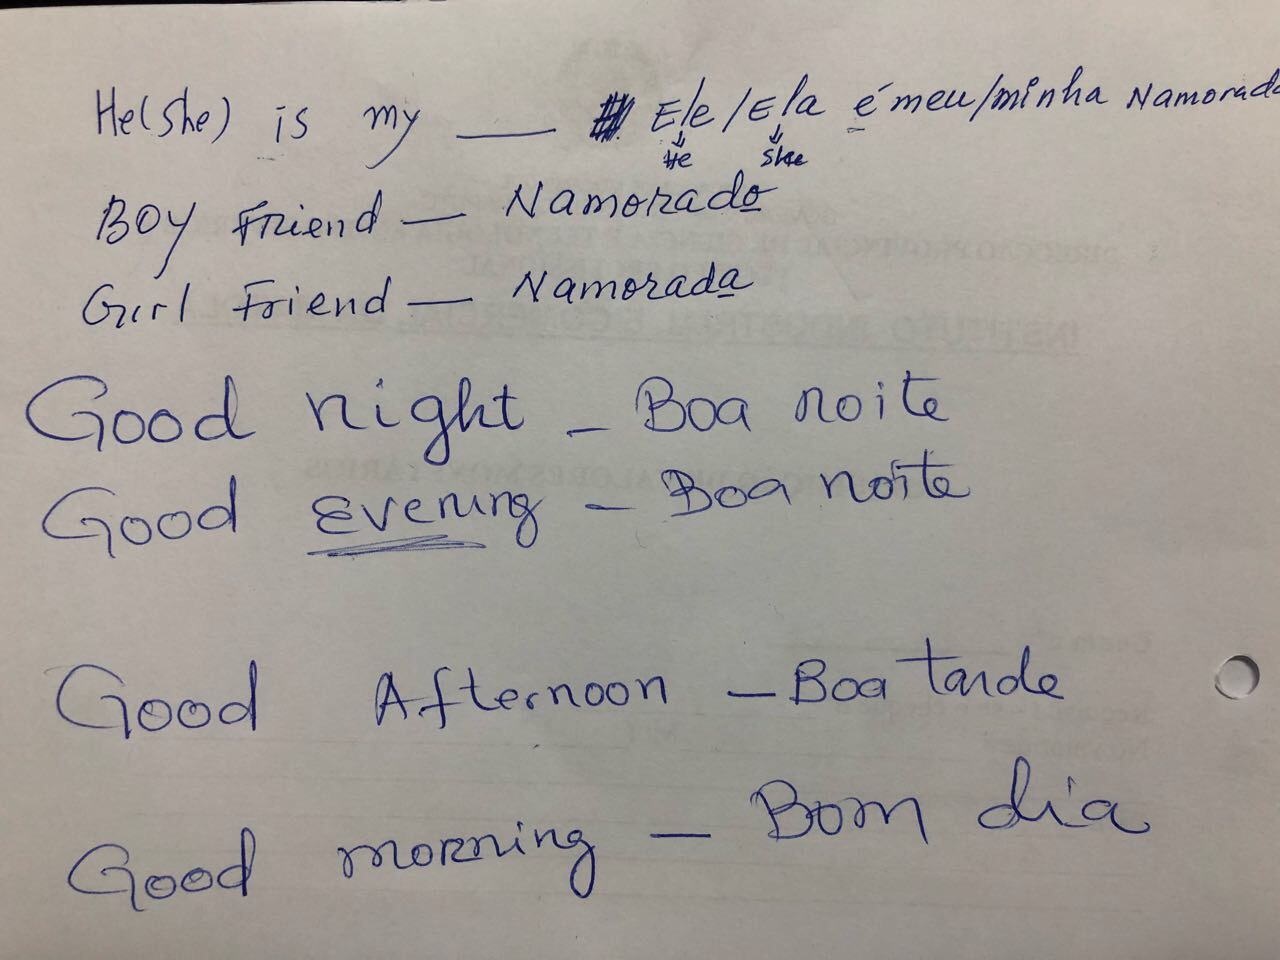 He(She) is my ___ Ele/Ela é meu/minha Namorada
He She
BOY Friend — Namorado
Girl Friend — Namorada
Good night - Boa noite
Good Evening - Boa noite
Good Afternoon - Boa tarde
Good morning — Bom dia